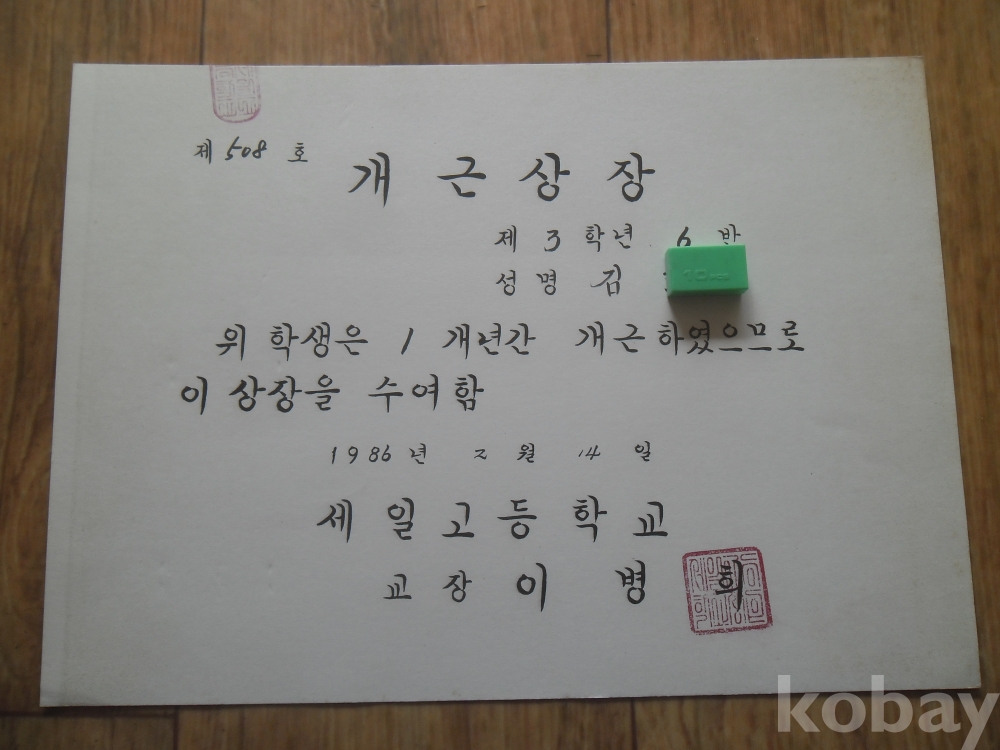 제 508 호
개 근 상 장
제 3 학년 6 반
성 명 김
위 학생은 1 개년간 개근하였으므로
이 상장을 수여함
1986 년 2 월 14 일
세 일 고 등 학 교
교 장 이 병 희
kobay